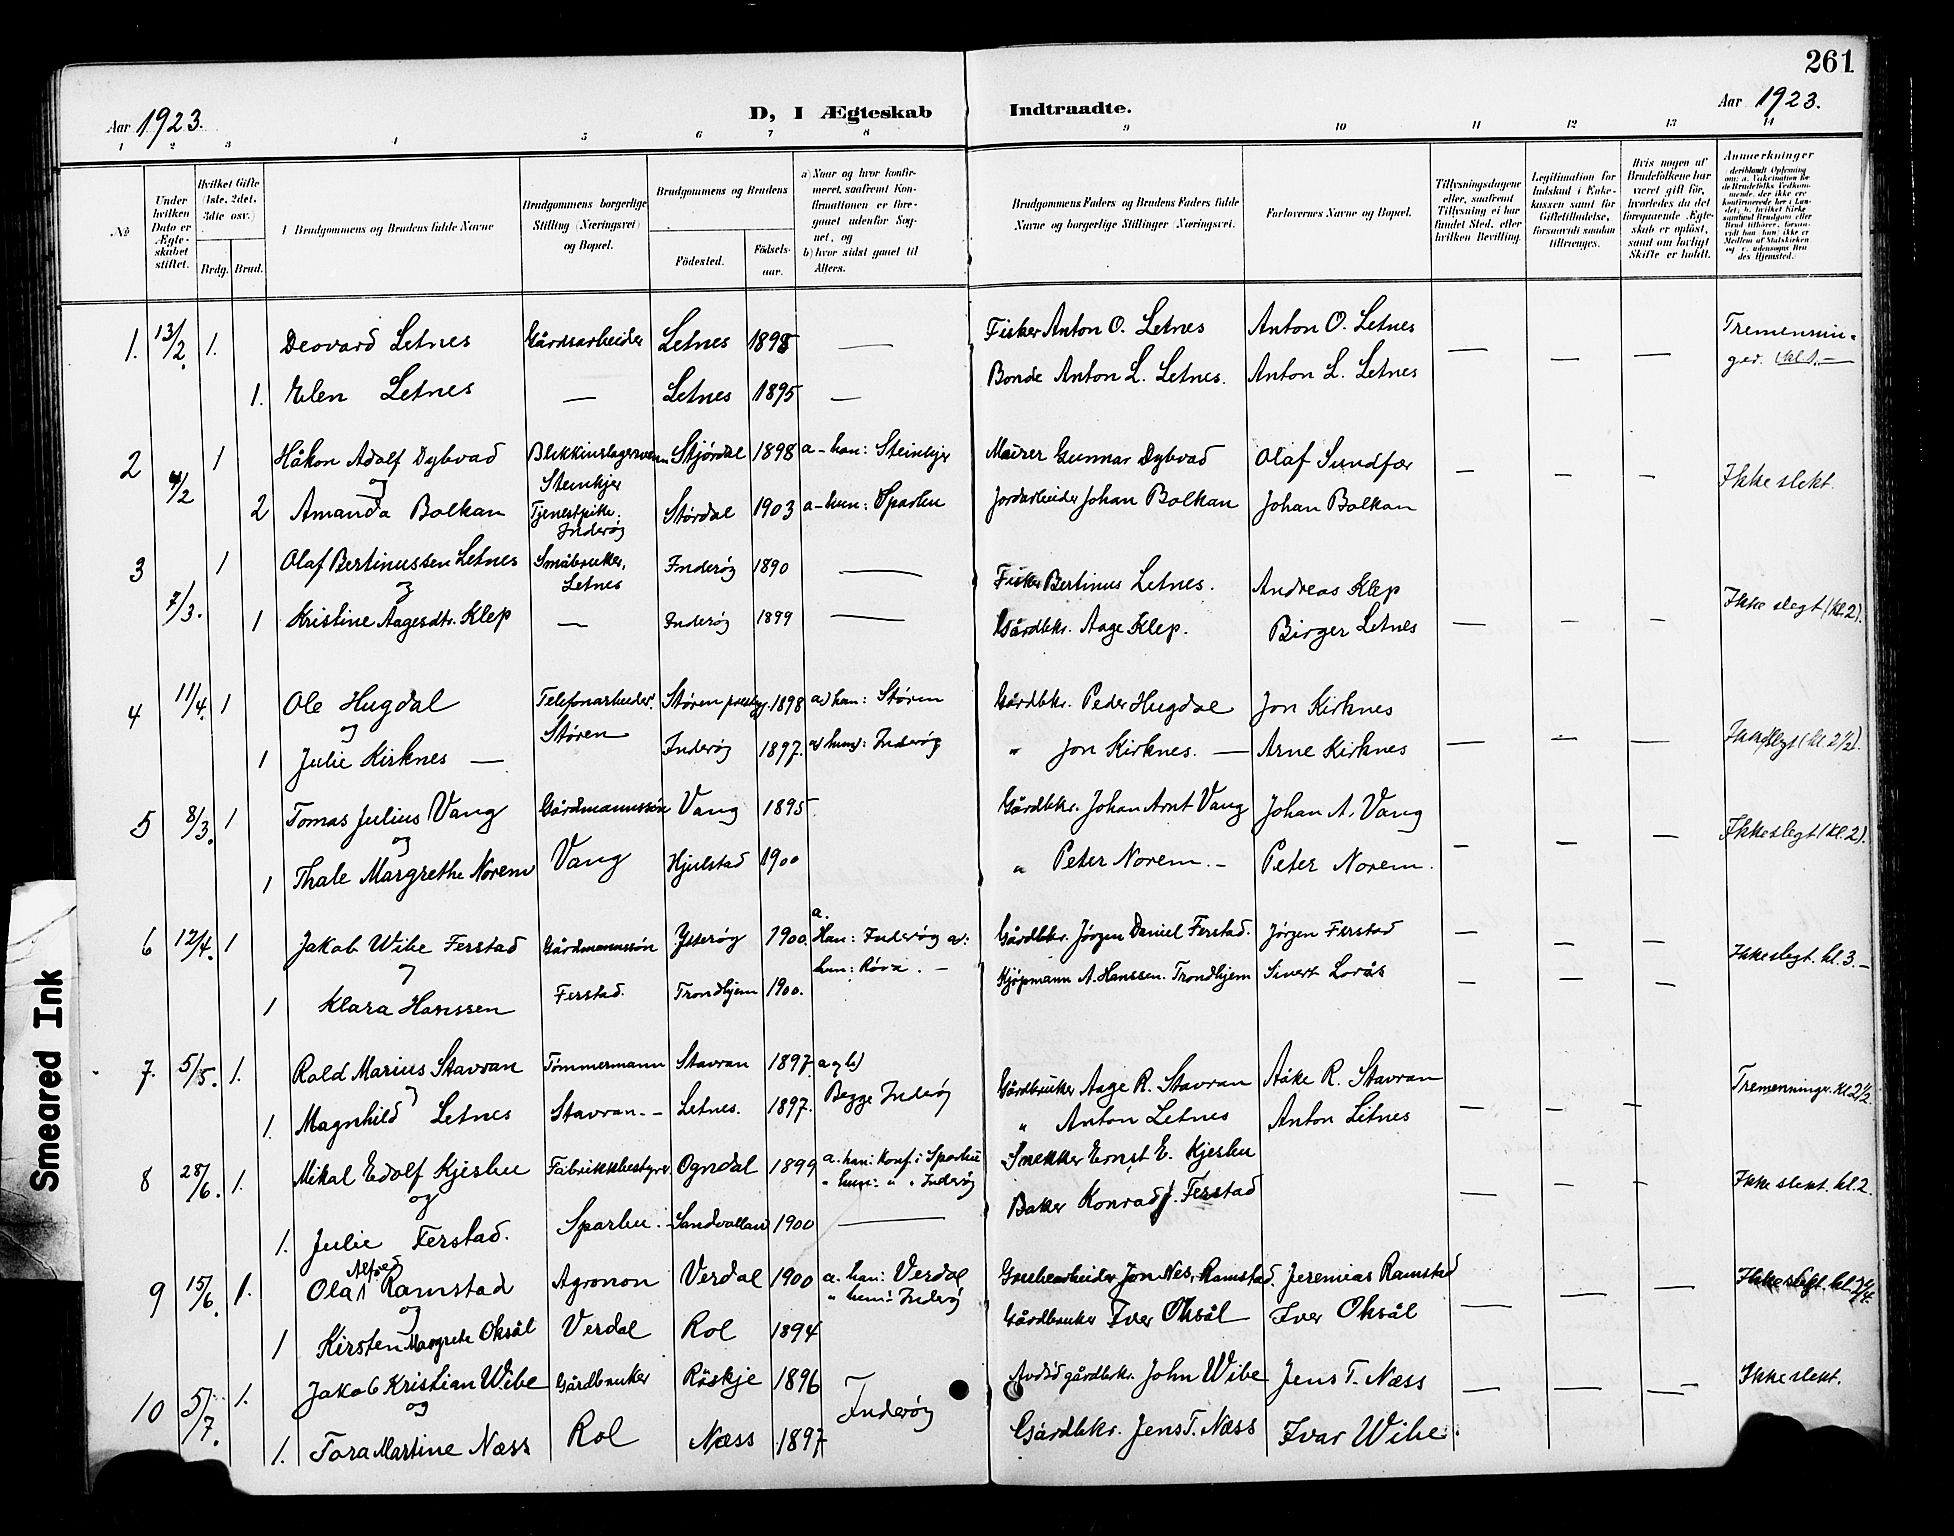 261
Aar 1923.
D, I Ægteskab Indtraadte.
Aar 1923.
1 2 3 4 5 6 7 8 9 10 11 12 13 14
No
Under hvilken Dato er Ægteskabet stiftet.
Hvilket Gifte (1ste, 2det, 3die osv.)
Brdg. Brud.
Brudgommens og Brudens fulde Navne
Brudgommens borgerlige Stilling (Næringsvei) og Bopæl.
Brudgommens og Brudens
Födested. Födselsaar.
a) Naar og hvor konfirmeret, saafremt Konfirmationen er foregaaet udenfor Sognet, og
b) hvor sidst gaaet til Alters.
Brudgommens Faders og Brudens Faders fulde Navne og borgerlige Stillinger (Næringsvei).
Forlovernes Navne og Bopæl.
Tillysningsdagene eller, saafremt Tillysning ei har fundet Sted, efter hvilken Bevilling.
Legitimation for Indskud i Enkekassen samt for Giftetilladelse, forsaavidt saadan tiltrænges.
Hvis nogen af Brudefolkene har været gift før, hvorledes da det foregaaende Ægteskab er opløst, samt om lovligt Skifte er holdt.
Anmerkninger
1. 13/2. 1. Deovard Letnes Gårdsarbeider Letnes 1898 — Fisker Anton O. Letnes Anton O. Letnes — — — Tremennin-
ger.
1. Elen Letnes — Letnes 1895 — Bonde Anton L. Letnes. Anton L. Letnes
2 4/2 1 Håkon Adolf Dybvad Stjørdal 1898 a - han: Steinkjer Murer Gunnar Dybvad Olaf Sundfær — — — Ikke slekt.
og Steinkjer
2 Amanda Bolkan Tjenestpike. Størdal 1903 a - hun: Sparbu Jordarbeider Johan Bolkan Johan Bolkan
Inderøy
3 7/3. 1 Olaf Bertinussen Letnes Småbruker, Inderøy 1890 — Fisker Bertinus Letnes. Andreas Klep Ikke slegt (kl. 2).
og Letnes
1 Kristine Aagesdtr. Klep — Inderøy 1899 — Gårdbkr. Aage Klep. Birger Letnes — — —
4 11/4. 1 Ole Hugdal Telefonarbeider. Støren prestegj. 1898 a) han: Støren Gårdbkr. Peder Hugdal Jon Kirknes
og Støren
1 Julie Kirknes — Inderøy 1897. a) hun: Inderøy " Jon Kirknes. — Arne Kirknes — — — (kl. 2½).
5 8/3. 1 Tomas Julius Vang Gårdmannssøn Vang 1895 Gårdbkr. Johan Arnt Vang Johan A. Vang Ikke slegt (kl. 2).
og Vang
1 Thale Margrethe Norem Hjulstad 1900 " Peter Norem. — Peter Norem. — — —
6 12/4. 1 Jakob Wibe Ferstad Gårdmannssön Ytterøy 1900. a. Han: Inderøy a: Gårdbkr. Jörgen Daniel Ferstad. Jörgen Ferstad — — — Ikke slegt. kl. 3. —
og hun: Røra. —
1 Klara Hanssen Ferstad. Trondhjem 1900. Kjøpmann A. Hanssen. Trondhjem Sivert Lorås — — —
7. 5/5. 1. Rold Marius Stavran Tömmermann Stavran 1897. a og b) Gårdbruker Aage R. Stavran Aake R. Stavran Tremenninger. kl. 2½.
1. Magnhild Letnes Stavran. - Letnes. 1897. Begge Inderøy " Anton Letnes Anton Letnes — — —
8 28/6. 1. Mikal Edolf Kjesbu Fabrikkbestyrer Ogndal 1899 a. han: Konf. i Sparbu Snekker Ernst E. Kjesbu Ikke slekt. kl. 2.
og " hun: " " Inderøy
1. Julie Ferstad. Sparbu. - Sandvollan 1900 — Baker Konrad J. Ferstad — — —
9 15/6. 1. Ola Alfred Ramstad Agronon Verdal 1900 a. han: Verdal Grubearbeider Jon Nes. Ramstad. Jeremias Ramstad Ikke slegt.
og " hun: Inderøy
1 Kirsten Margrete Oksål Verdal Rol 1894 Gårdbruker Iver Oksål Iver Oksål — — —
10 5/7. 1. Jakob Kristian Wibe Gårdbruker Röskje 1896 Inderøy Avdöd gårdbkr. John Wibe Jens T. Næss — — — Ikke slekt.
og
1. Tora Martine Næss Rol Næss 1897 Gårdbkr. Jens T. Næss Ivar Wibe.
Smeared Ink